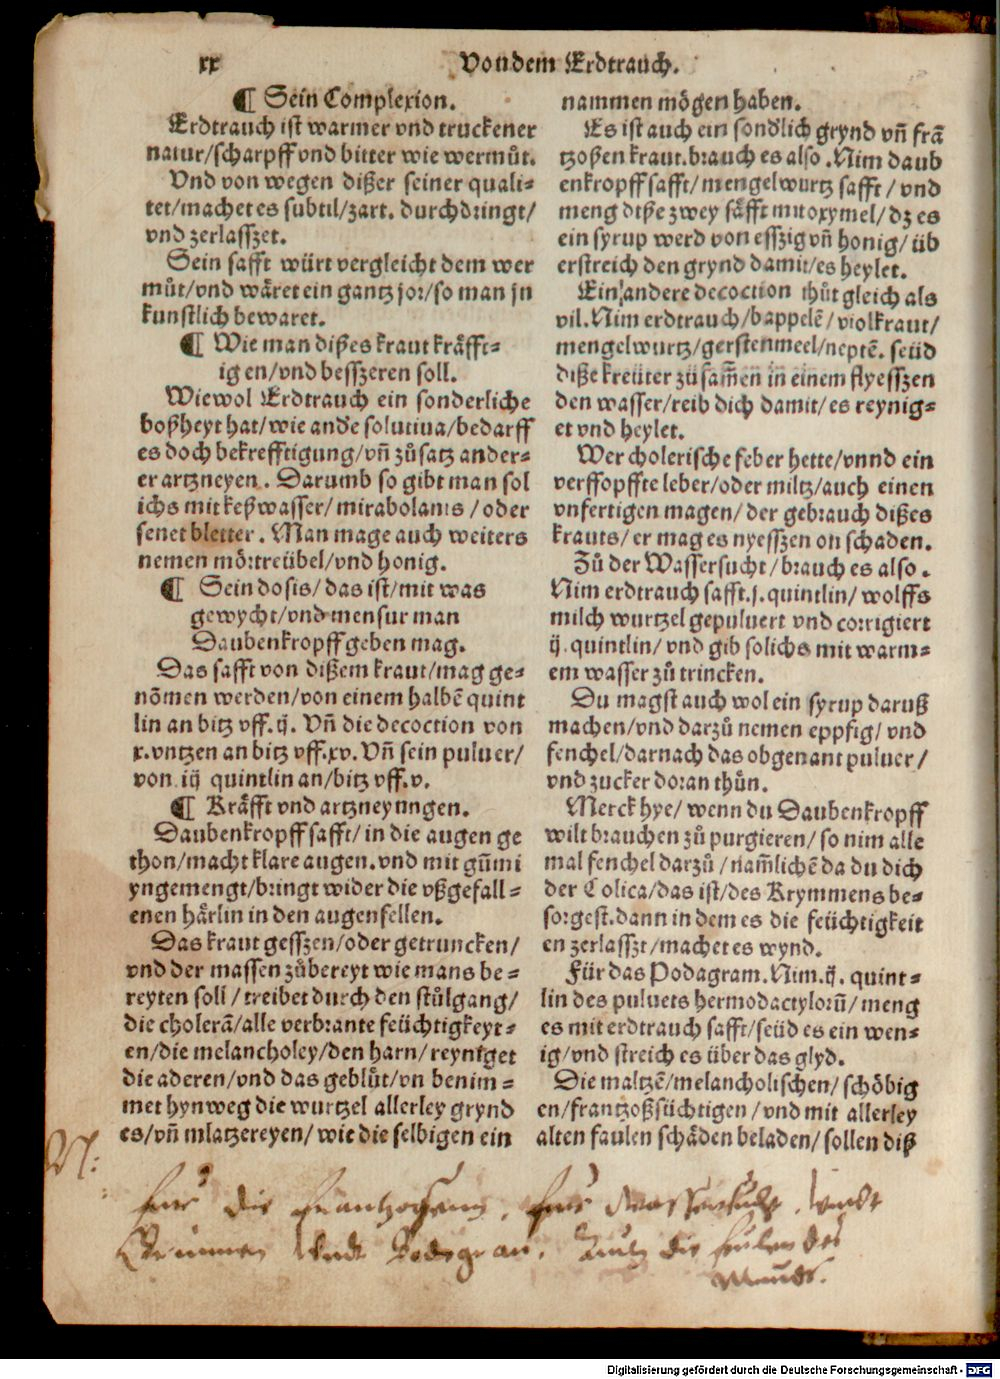 xx
Von dem Erdtrauch.
¶ Sein Complexion.
Erdtrauch ist warmer vnd truckener
natur/scharpff vnd bitter wie wermůt.
Vnd von wegen dißer seiner quali⸗
tet/machet es subtil/zart. durchdringt/
vnd zerlasszet.
Sein safft würt vergleicht dem wer
můt/vnd wäret ein gantz jor/so man jn
kunstlich bewaret.
¶ Wie man dißes kraut kräfft⸗
igen/vnd besszeren soll.
Wiewol Erdtrauch ein sonderliche
boßheyt hat/wie and'e solutiua/bedarff
es doch bekrefftigung/vñ zůsatz ander⸗
er artzneyen. Darumb so gibt man sol
ichs mit keßwasser/mirabolanis/oder
senet bletter. Man mage auch weiters
nemen mörtreübel/vnd honig.
¶ Sein dosis/das ist/mit was
gewycht/vnd mensur man
Daubenkropff geben mag.
Das safft von dißem kraut/mag ge⸗
nōmen werden/von einem halbē quint
lin an bitz vff.ij. Vñ die decoction von
x.vntzen an bitz vff.xv. Vñ sein puluer/
von iij quintlin an/bitz vff.v.
¶ Kräfft vnd artzneyungen.
Daubenkropff safft/in die augen ge
thon/macht klare augen.vnd mit gūmi
yngemengt/bringt wider die vßgefall⸗
enen härlin in den augenfellen.
Das kraut gesszen/oder getruncken/
vnd der massen zůbereyt wie mans be⸗
reyten soll/treibet durch den stůlgang/
die colerā/alle verbrante feüchtigkeyt⸗
en/die melancholey/den harn/reyniget
die aderen/vnd das geblůt/vn benim⸗
met hynweg die wurtzel allerley grynd
es/vñ mlatzereyen/wie die selbigen ein
nammen mögen haben.
Es ist auch ein sond'lich grynd vñ frā
tzoßen kraut.brauch es also. Nim daub
enkropff safft/mengelwurtz safft/vnd
meng diße zwey säfft mit oxymel/dz es
ein syrup werd von esszig vñ honig/üb
erstreich den grynd damit/es heylet.
Ein andere decoction thůt gleich als
vil. Nim erdtrauch/bappelē/violkraut/
mengelwurtz/gerstenmeel/neptē. seüd
diße kreüter zůsamēn in einem flyesszen
den wasser/reib dich damit/es reynig⸗
et vnd heylet.
Wer cholerische feber hette/vnnd ein
verssopffte leber/oder miltz/auch einen
vnfertigen magen/der gebrauch dißes
krauts/er mag es nyesszen on schaden.
Zů der Wassersucht/brauch es also.
Nim erdtrauch safft.j.quintlin/wolffs
milch wurtzel gepuluert vnd corrigiert
ij.quintlin/vnd gib solichs mit warm⸗
em wasser zů trincken.
Du magst auch wol ein syrup daruß
machen/vnd darzů nemen eppfig/vnd
fenchel/darnach das obgenant puluer/
vnd zucker doran thůn.
Merck hye/wenn du Daubenkropff
wilt brauchen zů purgieren/so nim alle
mal fenchel darzů/nam̄lichē da du dich
der Colica/das ist/des Krymmens be⸗
sorgest.dann in dem es die feüchtigkeit
en zerlasszt/machet es wynd.
Für das Podagram.Nim.ij.quint⸗
lin des puluers hermodactylorū/meng
es mit erdtrauch safft/seüd es ein wen⸗
ig/vnd streich es über das glyd.
Die maltzē/melancholischen/schöbig
en/frantzoßsüchtigen/vnd mit allerley
alten faulen schäden beladen/sollen diß
fur die frantzosenn. fur Wassersucht. Vnndt
Grimmen Vndt Podogran. die
Digitalisierung gefördert durch die Deutsche Forschungsgemeinschaft - DFG